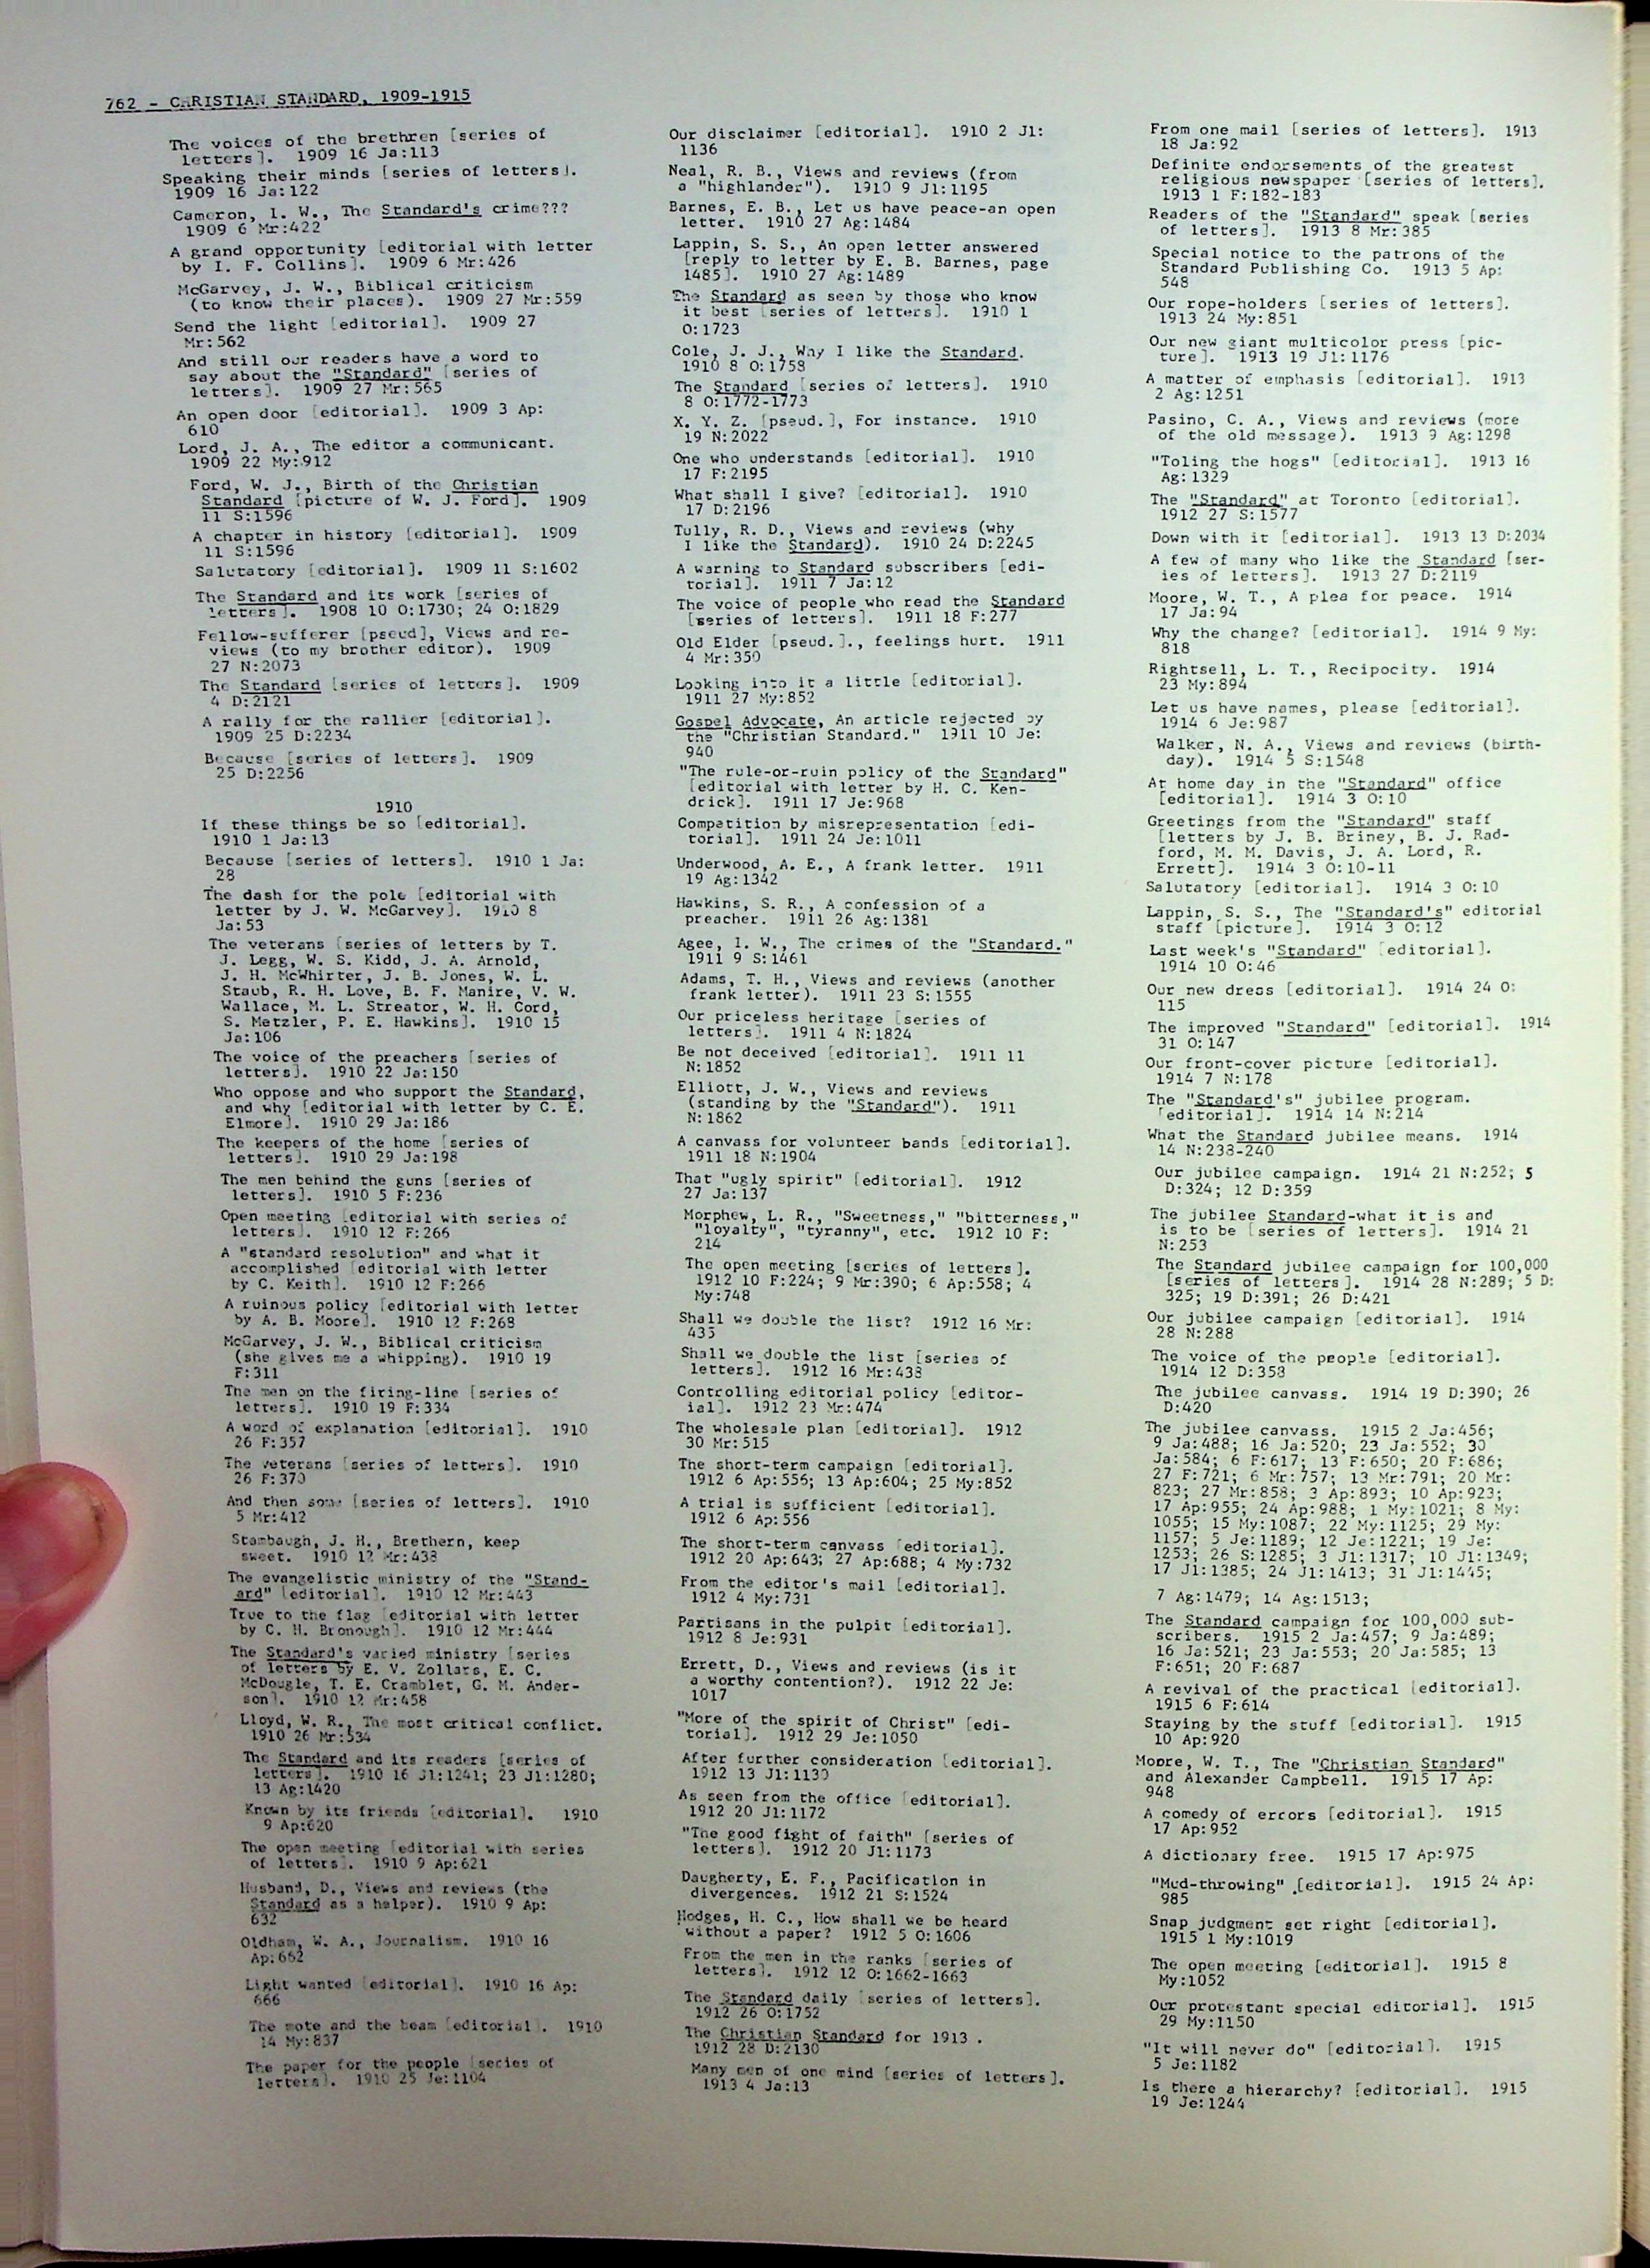 762 - CHRISTIAN STANDARD, 1909-1915
The voices of the brethren [series of
letters]. 1909 16 Ja:113
Speaking their minds [series of letters].
1909 16 Ja:122
Cameron, I. W., The Standard's crime???
1909 6 Mr:422
A grand opportunity [editorial with letter
by I. F. Collins]. 1909 6 Mr:426
McGarvey, J. W., Biblical criticism
(to know their places). 1909 27 Mr:559
Send the light [editorial]. 1909 27
Mr:562
And still our readers have a word to
say about the "Standard" [series of
letters]. 1909 27 Mr:565
An open door [editorial]. 1909 3 Ap:
610
Lord, J. A., The editor a communicant.
1909 22 My:912
Ford, W. J., Birth of the Christian
Standard [picture of W. J. Ford]. 1909
11 S:1596
A chapter in history [editorial]. 1909
11 S:1596
Salutatory [editorial]. 1909 11 S:1602
The Standard and its work [series of
letters]. 1908 10 O:1730; 24 O:1829
Fellow-sufferer [pseud], Views and re-
views (to my brother editor). 1909
27 N:2073
The Standard [series of letters]. 1909
4 D:2121
A rally for the rallier [editorial].
1909 25 D:2234
Because [series of letters]. 1909
25 D:2256
1910
If these things be so [editorial].
1910 1 Ja:13
Because [series of letters]. 1910 1 Ja:
28
The dash for the pole [editorial with
letter by J. W. McGarvey]. 1910 8
Ja:53
The veterans [series of letters by T.
J. Legg, W. S. Kidd, J. A. Arnold,
J. H. McWhirter, J. B. Jones, W. L.
Staub, R. H. Love, B. F. Manire, V. W.
Wallace, M. L. Streator, W. H. Cord,
S. Metzler, P. E. Hawkins]. 1910 15
Ja:106
The voice of the preachers [series of
letters]. 1910 22 Ja:150
Who oppose and who support the Standard,
and why [editorial with letter by C. E.
Elmore]. 1910 29 Ja:186
The keepers of the home [series of
letters]. 1910 29 Ja:198
The men behind the guns [series of
letters]. 1910 5 F:236
Open meeting [editorial with series of
letters]. 1910 12 F:266
A "standard resolution" and what it
accomplished [editorial with letter
by C. Keith]. 1910 12 F:266
A ruinous policy [editorial with letter
by A. B. Moore]. 1910 12 F:268
McGarvey, J. W., Biblical criticism
(she gives me a whipping). 1910 19
F:311
The men on the firing-line [series of
letters]. 1910 19 F:334
A word of explanation [editorial]. 1910
26 F:357
The veterans [series of letters]. 1910
26 F:370
And then some [series of letters]. 1910
5 Mr:412
Stambaugh, J. H., Brethern, keep
sweet. 1910 12 Mr:438
The evangelistic ministry of the "Stand-
ard" [editorial]. 1910 12 Mr:443
True to the flag [editorial with letter
by C. H. Bronough]. 1910 12 Mr:444
The Standard's varied ministry [series
of letters by E. V. Zollars, E. C.
McDougle, T. E. Cramblet, G. M. Ander-
son]. 1910 12 Mr:458
Lloyd, W. R., The most critical conflict.
1910 26 Mr:534
The Standard and its readers [series of
letters]. 1910 16 Jl:1241; 23 Jl:1280;
13 Ag:1420
Known by its friends [editorial]. 1910
9 Ap:620
The open meeting [editorial with series
of letters]. 1910 9 Ap:621
Husband, D., Views and reviews (the
Standard as a helper). 1910 9 Ap:
632
Oldham, W. A., Journalism. 1910 16
Ap:662
Light wanted [editorial]. 1910 16 Ap:
666
The mote and the beam [editorial]. 1910
14 My:837
The paper for the people [series of
letters]. 1910 25 Je:1104
Our disclaimer [editorial]. 1910 2 Jl:
1136
Neal, R. B., Views and reviews (from
a "highlander"). 1910 9 Jl:1195
Barnes, E. B., Let us have peace-an open
letter. 1910 27 Ag:1484
Lappin, S. S., An open letter answered
[reply to letter by E. B. Barnes, page
1485]. 1910 27 Ag:1489
The Standard as seen by those who know
it best [series of letters]. 1910 1
O:1723
Cole, J. J., Why I like the Standard.
1910 8 O:1758
The Standard [series of letters]. 1910
8 O:1772-1773
X. Y. Z. [pseud.], For instance. 1910
19 N:2022
One who understands [editorial]. 1910
17 F:2195
What shall I give? [editorial]. 1910
17 D:2196
Tully, R. D., Views and reviews (why
I like the Standard). 1910 24 D:2245
A warning to Standard subscribers [edi-
torial]. 1911 7 Ja:12
The voice of people who read the Standard
[series of letters]. 1911 18 F:277
Old Elder [pseud.]., feelings hurt. 1911
4 Mr:350
Looking into it a little [editorial].
1911 27 My:852
Gospel Advocate, An article rejected by
the "Christian Standard." 1911 10 Je:
940
"The rule-or-ruin policy of the Standard"
[editorial with letter by H. C. Ken-
drick]. 1911 17 Je:968
Competition by misrepresentation [edi-
torial]. 1911 24 Je:1011
Underwood, A. E., A frank letter. 1911
19 Ag:1342
Hawkins, S. R., A confession of a
preacher. 1911 26 Ag:1381
Agee, I. W., The crimes of the "Standard."
1911 9 S:1461
Adams, T. H., Views and reviews (another
frank letter). 1911 23 S:1555
Our priceless heritage [series of
letters]. 1911 4 N:1824
Be not deceived [editorial]. 1911 11
N:1852
Elliott, J. W., Views and reviews
(standing by the "Standard"). 1911
N:1862
A canvass for volunteer bands [editorial].
1911 18 N:1904
That "ugly spirit" [editorial]. 1912
27 Ja:137
Morphew, L. R., "Sweetness," "bitterness,"
"loyalty", "tyranny", etc. 1912 10 F:
214
The open meeting [series of letters].
1912 10 F:224; 9 Mr:390; 6 Ap:558; 4
My:748
Shall we double the list? 1912 16 Mr:
435
Shall we double the list [series of
letters]. 1912 16 Mr:438
Controlling editorial policy [editor-
ial]. 1912 23 Mr:474
The wholesale plan [editorial]. 1912
30 Mr:515
The short-term campaign [editorial].
1912 6 Ap:556; 13 Ap:604; 25 My:852
A trial is sufficient [editorial].
1912 6 Ap:556
The short-term canvass [editorial].
1912 20 Ap:643; 27 Ap:688; 4 My:732
From the editor's mail [editorial].
1912 4 My:731
Partisans in the pulpit [editorial].
1912 8 Je:931
Errett, D., Views and reviews (is it
a worthy contention?). 1912 22 Je:
1017
"More of the spirit of Christ" [edi-
torial]. 1912 29 Je:1050
After further consideration [editorial].
1912 13 Jl:1130
As seen from the office [editorial].
1912 20 Jl:1172
"The good fight of faith" [series of
letters]. 1912 20 Jl:1173
Daugherty, E. F., Pacification in
divergences. 1912 21 S:1524
Hodges, H. C., How shall we be heard
without a paper? 1912 5 O:1606
From the men in the ranks [series of
letters]. 1912 12 O:1662-1663
The Standard daily [series of letters].
1912 26 O:1752
The Christian Standard for 1913 .
1912 28 D:2130
Many men of one mind [series of letters].
1913 4 Ja:13
From one mail [series of letters]. 1913
18 Ja:92
Definite endorsements of the greatest
religious newspaper [series of letters].
1913 1 F:182-183
Readers of the "Standard" speak [series
of letters]. 1913 8 Mr:385
Special notice to the patrons of the
Standard Publishing Co. 1913 5 Ap:
548
Our rope-holders [series of letters].
1913 24 My:851
Our new giant multicolor press [pic-
ture]. 1913 19 Jl:1176
A matter of emphasis [editorial]. 1913
2 Ag:1251
Pasino, C. A., Views and reviews (more
of the old message). 1913 9 Ag:1298
"Toling the hogs" [editorial]. 1913 16
Ag:1329
The "Standard" at Toronto [editorial].
1912 27 S:1577
Down with it [editorial]. 1913 13 D:2034
A few of many who like the Standard [ser-
ies of letters]. 1913 27 D:2119
Moore, W. T., A plea for peace. 1914
17 Ja:94
Why the change? [editorial]. 1914 9 My:
818
Rightsell, L. T., Reciprocity. 1914
23 My:894
Let us have names, please [editorial].
1914 6 Je:987
Walker, N. A., Views and reviews (birth-
day). 1914 5 S:1548
At home day in the "Standard" office
[editorial]. 1914 3 O:10
Greetings from the "Standard" staff
[letters by J. B. Briney, B. J. Rad-
ford, M. M. Davis, J. A. Lord, R.
Errett]. 1914 3 O:10-11
Salutatory [editorial]. 1914 3 O:10
Lappin, S. S., The "Standard's" editorial
staff [picture]. 1914 3 O:12
Last week's "Standard" [editorial].
1914 10 O:46
Our new dress [editorial]. 1914 24 O:
115
The improved "Standard" [editorial]. 1914
31 O:147
Our front-cover picture [editorial].
1914 7 N:178
The "Standard's" jubilee program.
[editorial]. 1914 14 N:214
What the Standard jubilee means. 1914
14 N:238-240
Our jubilee campaign. 1914 21 N:252; 5
D:324; 12 D:359
The jubilee Standard-what it is and
is to be [series of letters]. 1914 21
N:253
The Standard jubilee campaign for 100,000
[series of letters]. 1914 28 N:289; 5 D:
325; 19 D:391; 26 D:421
Our jubilee campaign [editorial]. 1914
28 N:288
The voice of the people [editorial].
1914 12 D:358
The jubilee canvass. 1914 19 D:390; 26
D:420
The jubilee canvass. 1915 2 Ja:456;
9 Ja:488; 16 Ja:520; 23 Ja:552; 30
Ja:584; 6 F:617; 13 F:650; 20 F:686;
27 F:721; 6 Mr:757; 13 Mr:791; 20 Mr:
823; 27 Mr:858; 3 Ap:893; 10 Ap:923;
17 Ap:955; 24 Ap:988; 1 My:1021; 8 My:
1055; 15 My:1087; 22 My:1125; 29 My:
1157; 5 Je:1189; 12 Je:1221; 19 Je:
1253; 26 S:1285; 3 Jl:1317; 10 Jl:1349;
17 Jl:1385; 24 Jl:1413; 31 Jl:1445;
7 Ag:1479; 14 Ag:1513;
The Standard campaign for 100,000 sub-
scribers. 1915 2 Ja:457; 9 Ja:489;
16 Ja:521; 23 Ja:553; 20 Ja:585; 13
F:651; 20 F:687
A revival of the practical [editorial].
1915 6 F:614
Staying by the stuff [editorial]. 1915
10 Ap:920
Moore, W. T., The "Christian Standard"
and Alexander Campbell. 1915 17 Ap:
948
A comedy of errors [editorial]. 1915
17 Ap:952
A dictionary free. 1915 17 Ap:975
"Mud-throwing" [editorial]. 1915 24 Ap:
985
Snap judgment set right [editorial].
1915 1 My:1019
The open meeting [editorial]. 1915 8
My:1052
Our protestant special editorial]. 1915
29 My:1150
"It will never do" [editorial]. 1915
5 Je:1182
Is there a hierarchy? [editorial]. 1915
19 Je:1244